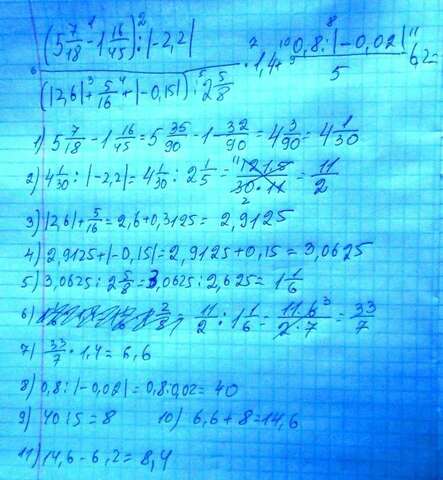 (5 7/18 - 1 16/45) : |-2,2|
(|2,6| + 5/16 + |-0,15|) : 2 5/8 · 1,4 + 0,8 : |-0,02| / 5 - 6,2 =
1) 5 7/18 - 1 16/45 = 5 35/90 - 1 32/90 = 4 3/90 = 4 1/30
2) 4 1/30 : |-2,2| = 4 1/30 : 2 1/5 = 121·5/30·11 = 11/2
3) |2,6| + 5/16 = 2,6 + 0,3125 = 2,9125
4) 2,9125 + |-0,15| = 2,9125 + 0,15 = 3,0625
5) 3,0625 : 2 5/8 = 3,0625 : 2,625 = 1 1/6
6) = 11/2 : 1 1/6 = 11·6/2·7 = 33/7
7) 33/7 · 1,4 = 6,6
8) 0,8 : |-0,02| = 0,8 : 0,02 = 40
9) 40 : 5 = 8 10) 6,6 + 8 = 14,6
11) 14,6 - 6,2 = 8,4